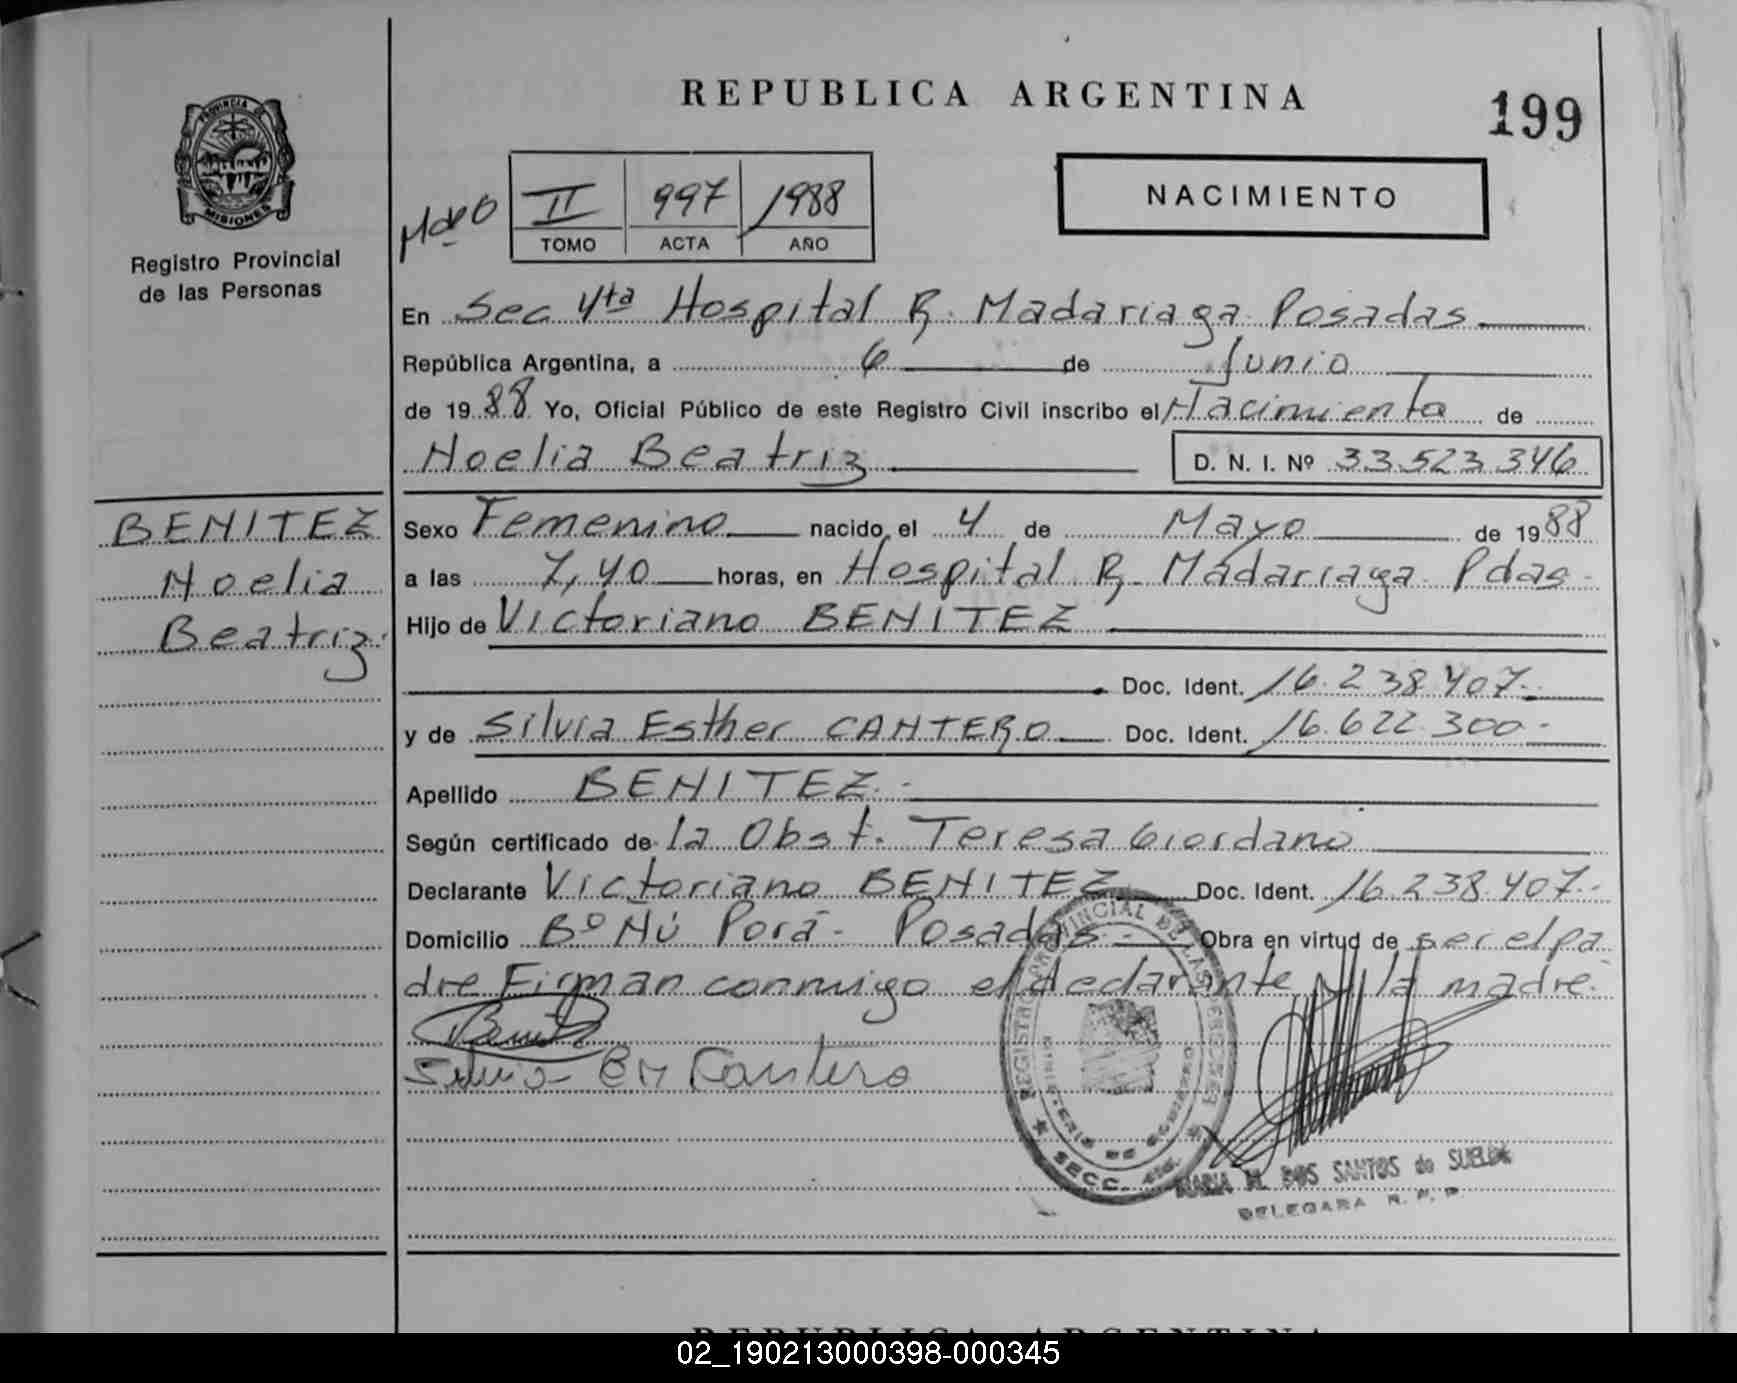 REPUBLICA ARGENTINA
199
PROVINCIA DE
MISIONES
Registro Provincial
de las Personas
NACIMIENTO
II 997 1988
TOMO ACTA AÑO
En Sec 4ta Hospital R. Madariaga Posadas
República Argentina, a 6 de Junio
de 1988 Yo, Oficial Público de este Registro Civil inscribo el Nacimiento de
Noelia Beatriz D. N. I. Nº 33.523.346
BENITEZ
Noelia
Beatriz
Sexo Femenino nacido el 4 de Mayo de 1988
a las 7,40 horas, en Hospital R. Madariaga Pdas
Hijo de Victoriano BENITEZ
Doc. Ident. 16.238.407
y de Silvia Esther CANTERO Doc. Ident. 16.622.300
Apellido BENITEZ
Según certificado de la Obst. Teresa Giordano
Declarante Victoriano BENITEZ Doc. Ident. 16.238.407
Domicilio Bº Ñú Porá - Posadas - Obra en virtud de ser el pa
dre Firman conmigo el declarante y la madre.
Cantero
REGISTRO PROVINCIAL DE LAS PERSONAS
MINISTERIO DE GOBIERNO
SECC. 4ta.
MARIA DOS SANTOS de
DELEGADA R. P. P.
REPUBLICA ARGENTINA
02_190213000398-000345